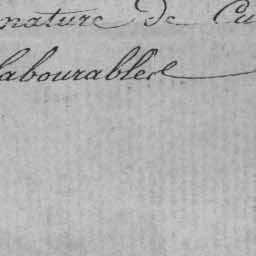 nature de Cu
labourables